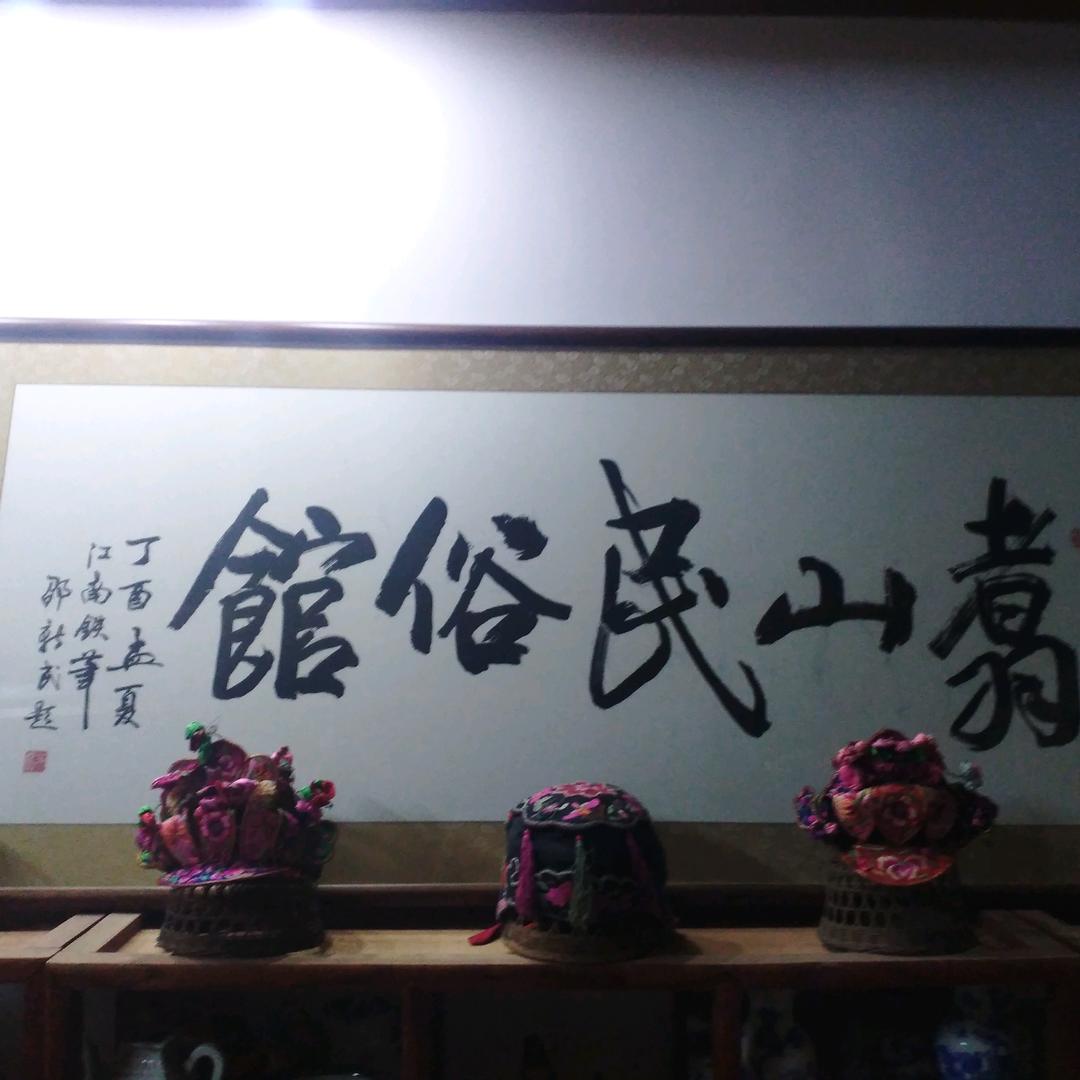 翥山民俗館
丁酉孟夏
江南鉄筆
邵新題